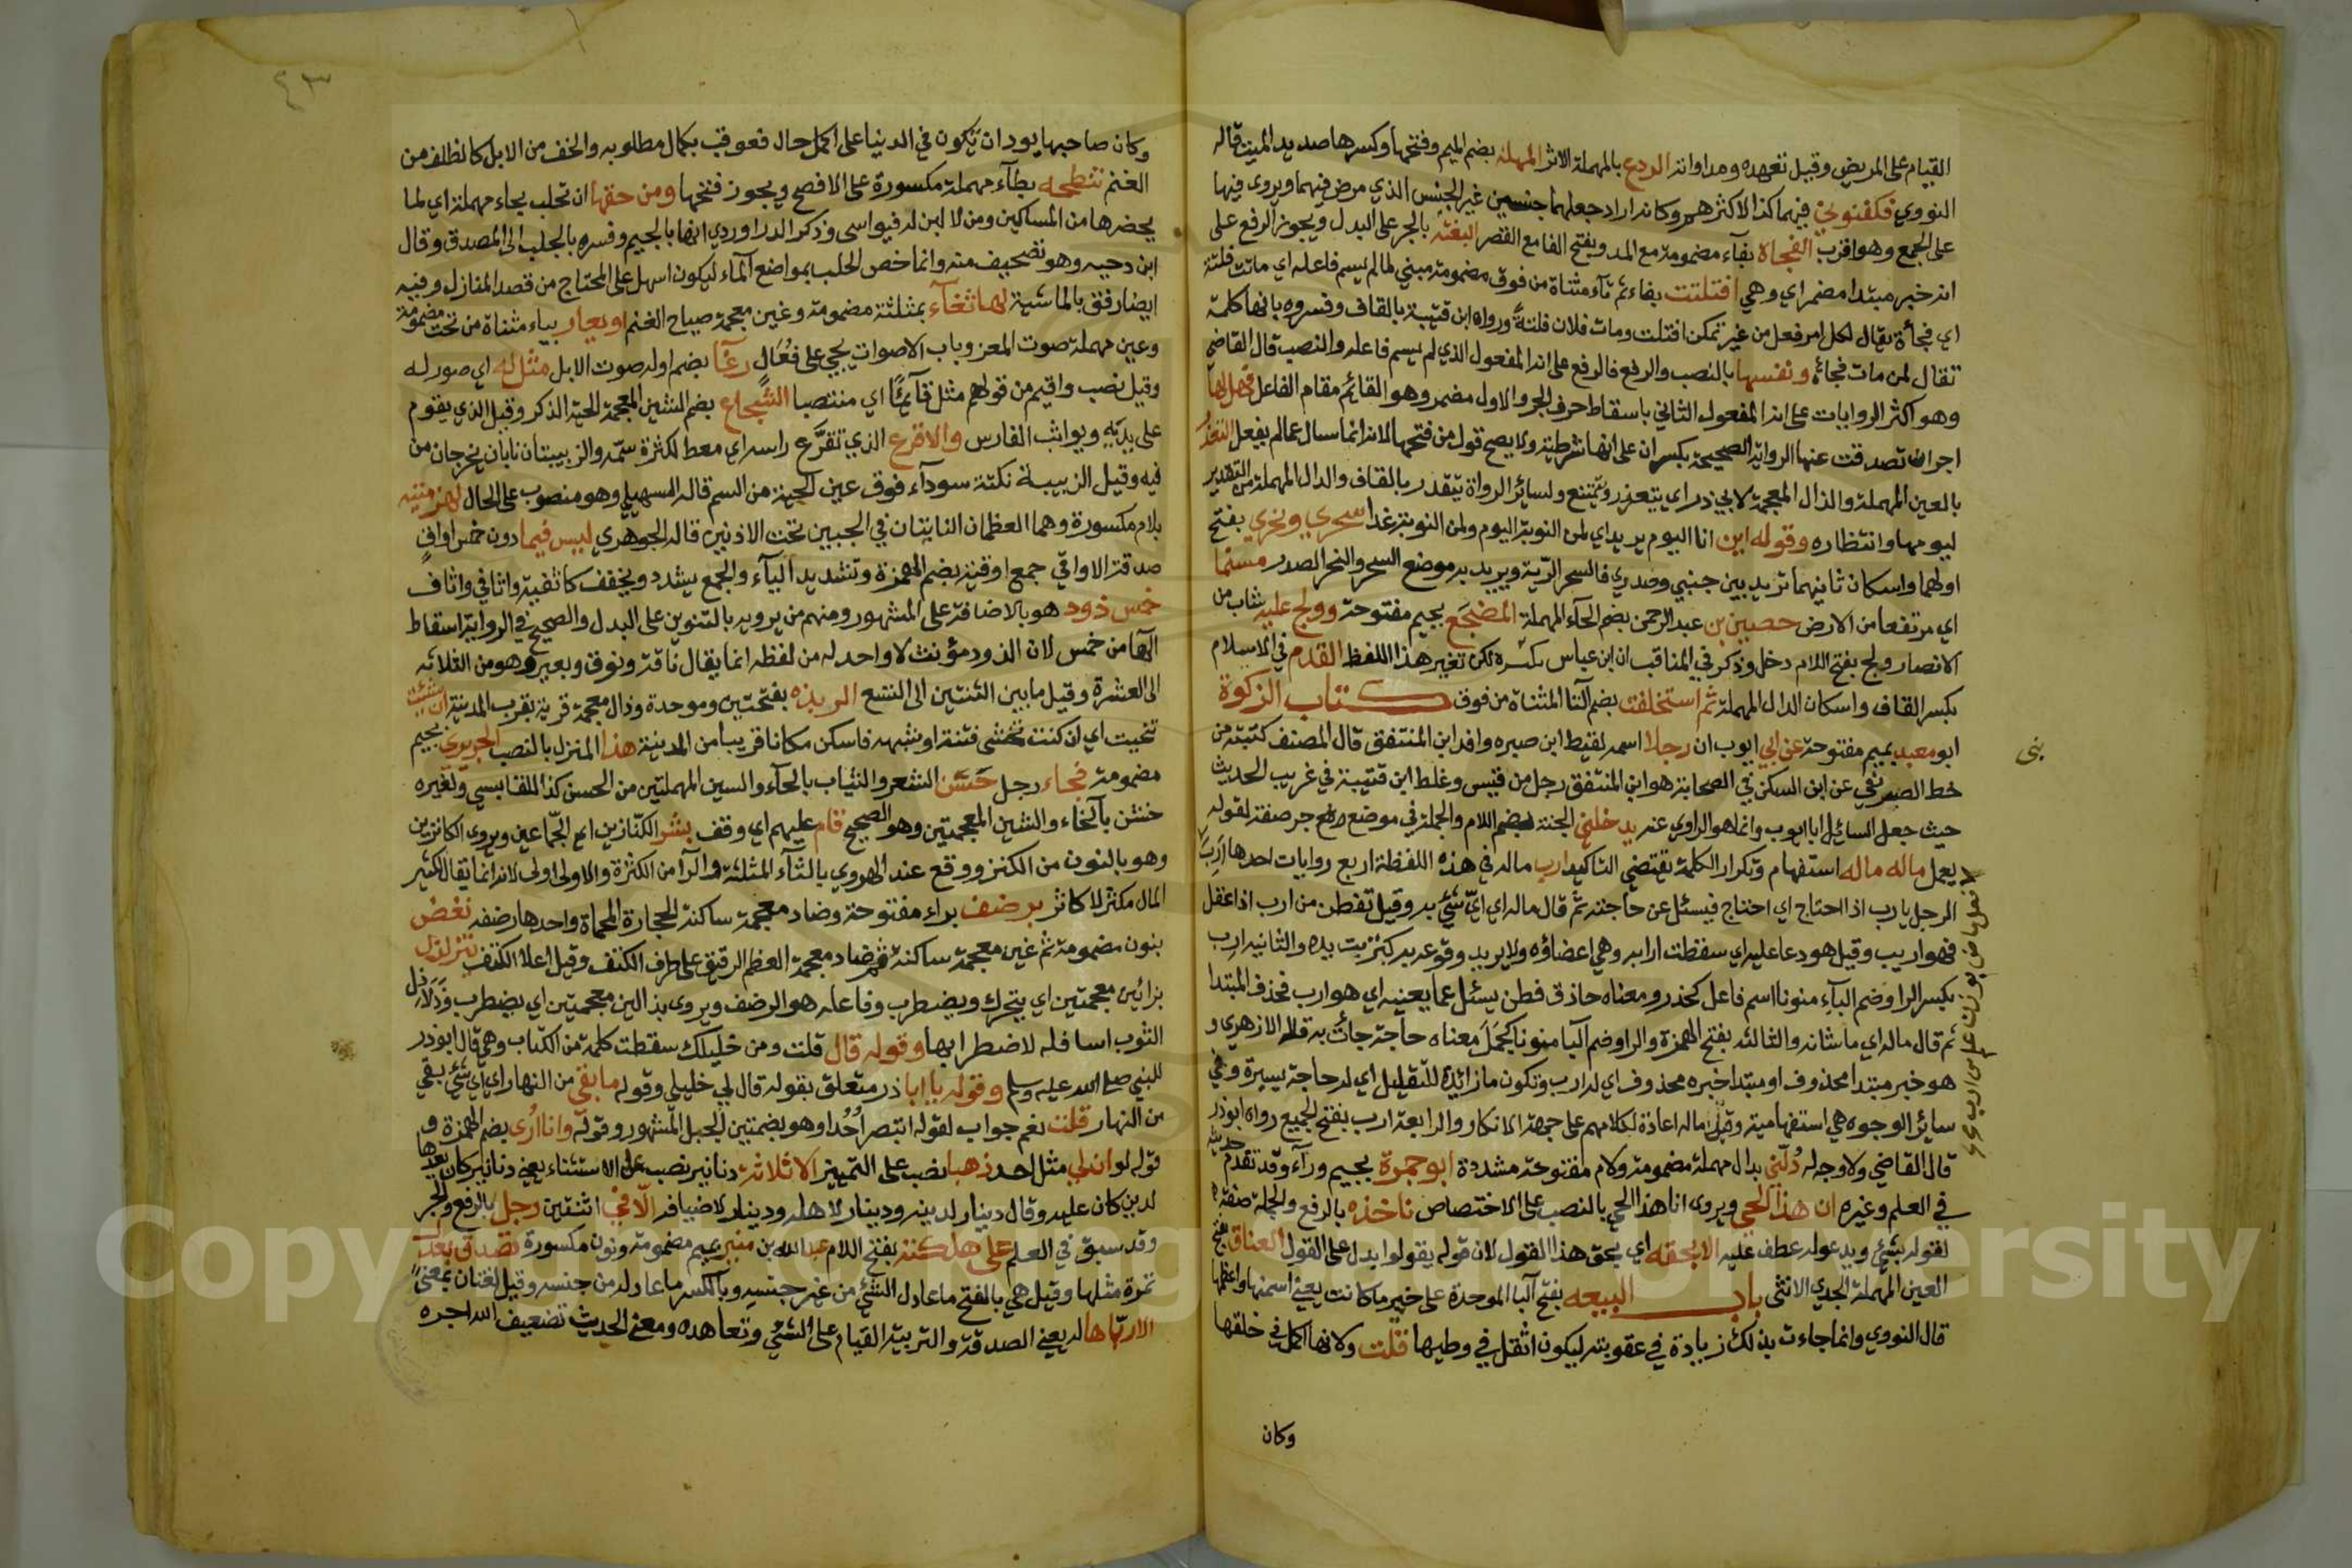 القيام على المريض وقيل تعهده ومداواته الردع بالمهملة الاثر المهلة بضم الميم وفتحها وكسرها صديد الميت قاله
النووي فكفنوني فيهما كذا للاكثر هم وكانه اراد جعلهما جنسين غير الجنس الذي مرض فيهما ويروى فيها
على الجمع وهو اقرب الفجاة بفآء مضمومة مع المد وبفتح الفا مع القصر البغتة بالجر على البدل ويجوز الرفع على
انه خبر مبتدا مضمر اي وهي افتلتت بفاء ثم تآء مثناة من فوق مضمومة مبني لما لم يسم فاعله اي ماتت فلتة
اي فجأة يقال لكل امر فعل من غير تمكن افتلت ومات فلان فلتةً ورواه ابن قتيبة بالقاف وفسروه بانها كلمة
تقال لمن مات فجاة ونفسها بالنصب والرفع فالرفع على انه المفعول الذي لم يسم فاعله والنصب قال القاضي
وهو اكثر الروايات على انه المفعول الثاني باسقاط حرف الجر والاول مضمر وهو القائم مقام الفاعل فهل لها
اجر ان تصدقت عنها الرواية الصحيحة بكسر ان على انها شرطية ولا يصح قول من فتحها لانه انما سال عما لم يفعل التعذر
بالعين المهملة والذال المعجمة لابي ذر اي يتعزر ويتمنع ولسائر الرواة يتقدر بالقاف والدال المهملة من التقدير
ليومها وانتظاره وقوله اين انا اليوم يريد اي لمن النوبة اليوم ولمن النوبة غدا سحري ونحري بفتح
اولهما واسكان ثانيهما تريد بين جنبي وصدري فالسحر الرّية ويريد به موضع السحر والنحر الصدر مسنما
اي مرتفعا من الارض حصين بن عبد الرحمن بضم الحآء المهملة المضجَع بجيم مفتوحة وولج عليه شاب من
الانصار ولج بفتح اللام دخل وذكر في المناقب ان ابن عباس لكن تغيير هذا اللفظ القدم في الاسلام
بكسر القاف واسكان الدال المهملة ثم استخلفت بضم التا المثناة من فوق كتاب الزكوة
ابو معبد بميم مفتوحة عن ابي ايوب ان رجلا اسمه لقيط ابن صبره وافد ابن المنتفق قال المصنف كتبته من
خط الصيرفي عن ابن السكن في الصحابة هو ابن المنتفق رجل من قيس وغلط ابن قتيبة في غريب الحديث
حيث جعل السائل ابا ايوب وانما هو الراوي عنه يدخلني الجنة بضم اللام والجملة في موضع جر صفة لقوله
يعمل ماله ماله استفهام وتكرار الكلمة يقتضي التاكيد ارب ماله في هذه اللفظة اربع روايات احدها ارِبَ
الرجل يارب اذا احتاج اي احتاج فيسئل عن حاجته ثم قال ماله اي ايّ شيء به وقيل تفطن من ارب اذا عقل
فهو اريب وقيل هو دعا عليه اي سقطت ارابه وهي اعضاؤه ولا يريد وقوعه به كتربت يده والثانية ارِب
بكسر الرا وضم البآء منونا اسم فاعل كحذر ومعناه حاذق فطن يسئل عما يعنيه اي هو ارب فحذف المبتدا
ثم قال ماله اي ما شانه والثالثة بفتح الهمزة والرا وضم البا منونا كجمَل معناه حاجة جأت به قاله الازهري و
هو خبر مبتدا محذوف او مبتدا خبره محذوف اي له ارب وتكون ما زائدة للتقليل اي له حاجة يسيرة وفي
سائر الوجوه هي استفهامية وقيل ماله اعادة لكلامهم على جهة الانكار والرابعة ارب بفتح الجميع رواه ابو ذر
قال القاضي ولا وجه له دُلّني بدال مهملة مضمومة ولام مفتوحة مشددة ابو جمرة بجيم ورآء وقد تقدم حديثه
في العلم وغيره ان هذا الحي ويروى انا هذا الحي بالنصب على الاختصاص ناخذه بالرفع والجملة صفة
لقوله بشئ ويدعو له عطف عليه الا بحقه اي بحق هذا القول لان قوله يقولوا يدل على القول العناق بفتح
العين المهملة الجدي الانثى باب البيعه بفتح البا الموحدة على خير ما كانت يعني اسمنها واعظمها
قال النووي وانما جاءت بذلك زيادة في عقوبته ليكون اثقل في وطيها قلت ولانها اكمل في خلقها
وكان
وكان صاحبها يود ان تكون في الدنيا على اكمل حال فعوقب بكمال مطلوبه والخف من الابل كالظلف من
الغنم تنطحه بطآء مهملة مكسورة على الافصح ويجوز فتحها ومن حقها ان تحلب بحاء مهملة اي لما
يحضرها من المساكين ومن لا لبن له فيواسى وذكر الداوردي انها بالجيم وفسره بالجلب الى المصدق وقال
ابن دحيه وهو تصحيف منه وانما خص الحلب بمواضع المآء ليكون اسهل على المحتاج من قصد المنازل وفيه
ايضا رفق بالماشية لها ثغآء بمثلثة مضمومة وغين معجمة صياح الغنم او يعار بياء مثناة من تحت مضمومة
وعين مهملة صوت المعز وباب الاصوات يجيء على فُعَال رغآ بضم اوله صوت الابل مثل له اي صور له
وقيل نصب واقيم من قولهم مثل قآئمًا اي منتصبا الشجاع بضم الشين المعجمة الحية الذكر وقيل الذي يقوم
على يديه ويواثب الفارس والاقرع الذي تقرَّع راسه اي معط لكثرة سمّه والزبيبتان نابان يخرجان من
فيه وقيل الزبيبة نكتة سودآء فوق عين الحية من السم قاله السهيلي وهو منصوب على الحال لهزمتيه
بلام مكسورة وهما العظمان الناتيان في الجبين تحت الاذنين قاله الجوهري ليس فيما دون خمس اواقٍ
صدقة الاواقي جمع اوقية بضم الهمزة وتشديد اليآء والجمع يشدد ويخفف كاثفية واثافي واثافٍ
خمس ذود هو بالاضافة على المشهور ومنهم من يرويه بالتنوين على البدل والصحيح في الرواية اسقاط
الهآ من خمس لان الذود مؤنث لا واحد له من لفظه انما يقال ناقة ونوق وبعير وهو من الثلاثه
الى العشرة وقيل ما بين الثنتين الى التسع الربذه بفتحتين وموحدة وذال معجمة قرية بقرب المدينة ان شئت
تنحيت اي ان كنت تخشى فتنة او شبهه فاسكن مكانا قريبا من المدينة هذا المنزل بالنصب الجريري بجيم
مضمومة فجاء رجل حَسَن الشعر والثياب بالحآء والسين المهملتين من الحسن كذا للقابسي ولغيره
خشن بالخآء والشين المعجمتين وهو الصحيح قام عليهم اي وقف بشر الكنّازين اي الجمّاعين ويروى الكانزين
وهو بالنون من الكنز ووقع عند الهروي بالثآء المثلثة والرآ من الكثرة والاولى اولى لانه انما يقال لكثير
المال مكثر لا كاثر برضف براء مفتوحة وضاد معجمة ساكنة الحجارة المحماة واحدها رضفه نغض
بنون مضمومة ثم غين معجمة ساكنة ثم ضاد معجمة العظم الرقيق على طرف الكتف وقيل اعلا الكتف تتزلزل
بزائين معجمتين اي يتحرك ويضطرب وفاعله هو الرضف ويروى بذالين معجمتين اي يضطرب وذَلاَذِل
الثوب اسافله لاضطرابها وقوله قال قلت ومن خليلك سقطت كلمة من الكتاب وهي قال ابو ذر
للنبي صلى الله عليه وسلم وقوله يا ابا ذر متعلق بقوله قال لي خليلي وقوله ما بقي من النهار اي اي شئ بقي
من النهار قلت نعم جواب لقوله اتبصر اُحُدا وهو بضمتين الجبل المشهور وقوله وانا اُرى بضم الهمزة و
قوله لو ان لي مثل احد ذهبا نصب على التمييز الا ثلاثة دنانير نصب على الاستثناء يعني دنانير كان بعدها
لدين كان عليه وقال دينار لدينه ودينار لاهله ودينار لاضيافه الّا في اثنتين رجل بالرفع والجر
وقد سبق في العلم على هلكته بفتح اللام عبد الله بن منير بميم مضمومة ونون مكسورة تصدق بعدل
تمرة مثلها وقيل هي بالفتح ما عادل الشئ من غير جنسه وبالكسر ما عادله من جنسه وقيل لغتان بمعنىً
الا ربّاها له يعني الصدقة والتربية القيام على الشئ وتعاهده ومعنى الحديث تضعيف الله اجره
Copyright © King Saud University